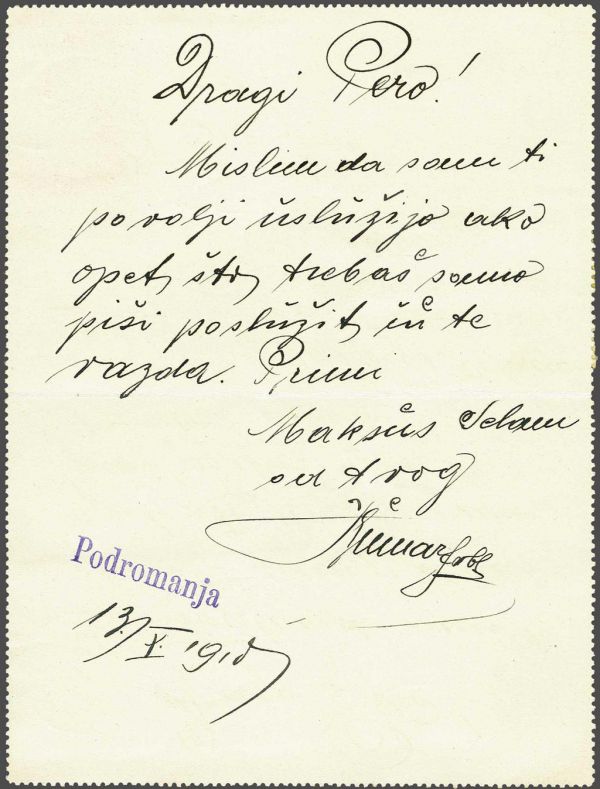 Dragi Pero!
Mislim da sam ti
po volji uslužijo ako
opet što trebaš samo
piši poslužit ću te
vazda. Primi
Maksus Selam
od tvog
Podromanja
13/X. 191